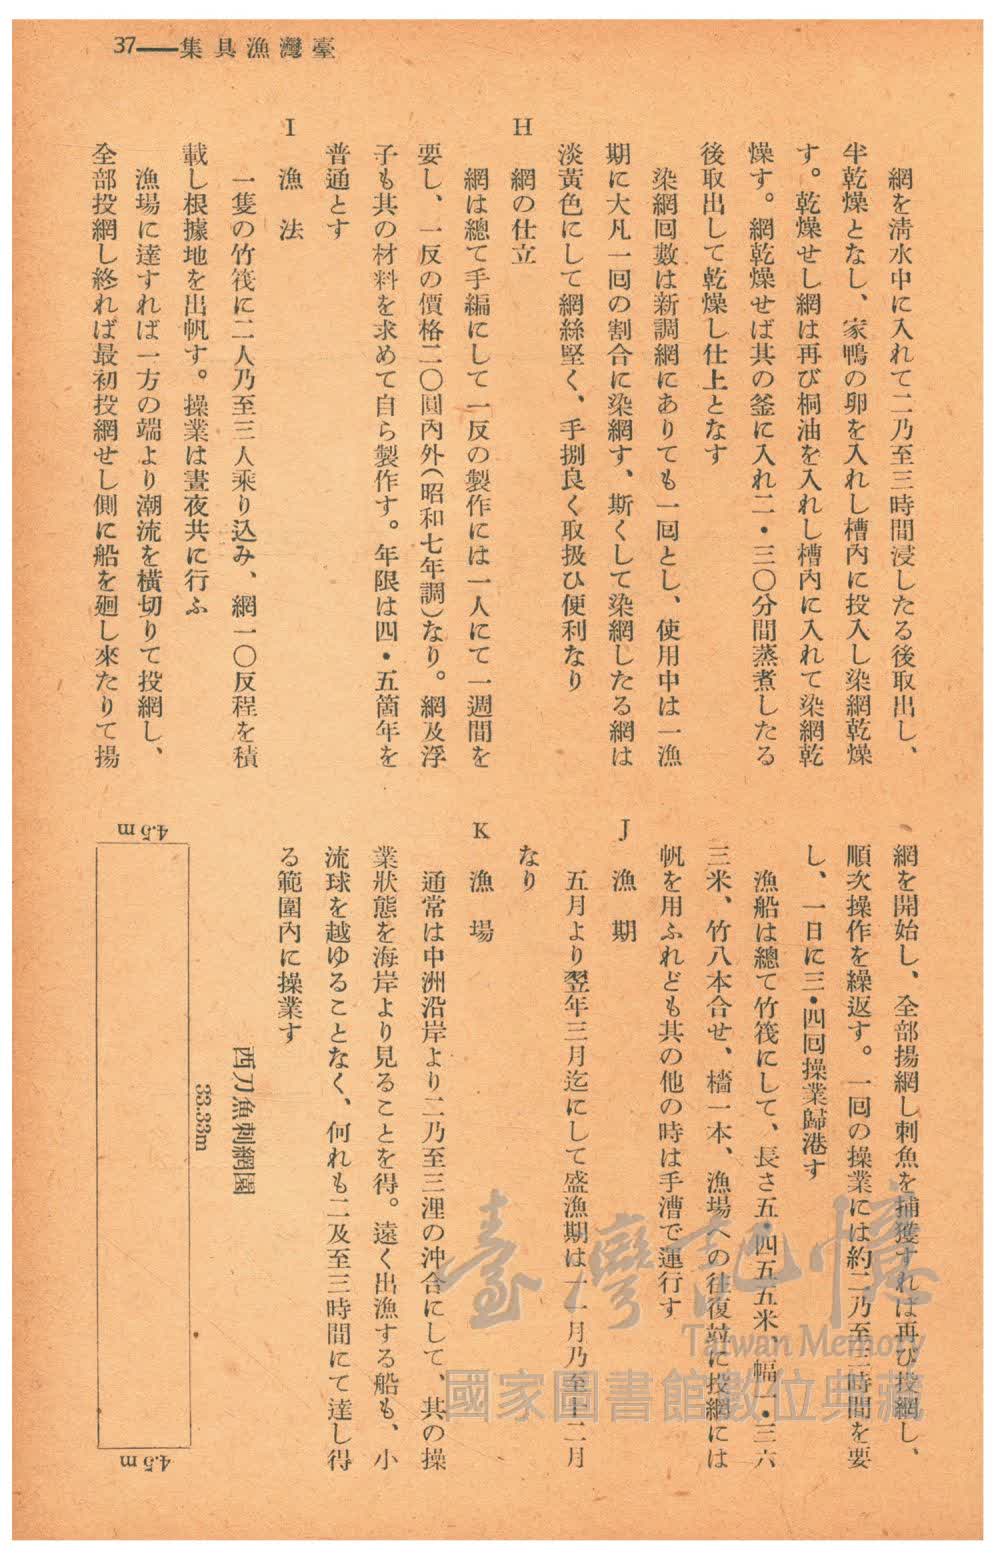 37——集具漁灣臺
網を清水中に入れて二乃至三時間浸したる後取出し、
半乾燥となし、家鴨の卵を入れし槽內に投入し染網乾燥
す。乾燥せし網は再び桐油を入れし槽內に入れて染網乾
燥す。網乾燥せば其の釜に入れ二・三〇分間蒸煮したる
後取出して乾燥し仕上となす
染網回數は新調網にありても一回とし、使用中は一漁
期に大凡一回の割合に染網す、斯くして染網したる網は
淡黃色にして網絲堅く、手捌良く取扱ひ便利なり
H 網の仕立
網は總て手編にして一反の製作には一人にて一週間を
要し、一反の價格二〇圓內外(昭和七年調)なり。網及浮
子も其の材料を求めて自ら製作す。年限は四・五箇年を
普通とす
I 漁法
一隻の竹筏に二人乃至三人乘り込み、網一〇反程を積
載し根據地を出帆す。操業は晝夜共に行ふ
漁場に達すれば一方の端より潮流を橫切りて投網し、
全部投網し終れば最初投網せし側に船を廻し來たりて揚
網を開始し、全部揚網し刺魚を捕獲すれば再び投網し、
順次操作を繰返す。一回の操業には約二乃至三時間を要
し、一日に三・四回操業歸港す
漁船は總て竹筏にして、長さ五・四五五米、幅一・三六
三米、竹八本合せ、檣一本、漁場への往復並に投網には
帆を用ふれども其の他の時は手漕で運行す
J 漁期
五月より翌年三月迄にして盛漁期は一一月乃至十二月
なり
K 漁場
通常は中洲沿岸より二乃至三浬の沖合にして、其の操
業狀態を海岸より見ることを得。遠く出漁する船も、小
流球を越ゆることなく、何れも二及至三時間にて達し得
る範圍內に操業す
西刀魚刺網圖
33.33m
4.5m
4.5m
臺灣記憶
Taiwan Memory
國家圖書館數位典藏